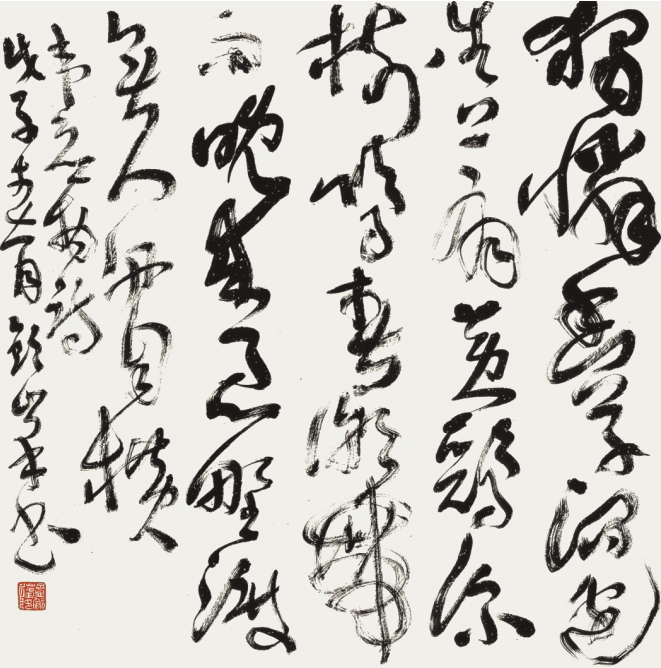 獨憐幽草澗邊
生上有黃鸝深
樹鳴春潮帶
雨晚來急野渡
無人舟自橫
韋應物詩
戊子 月 書